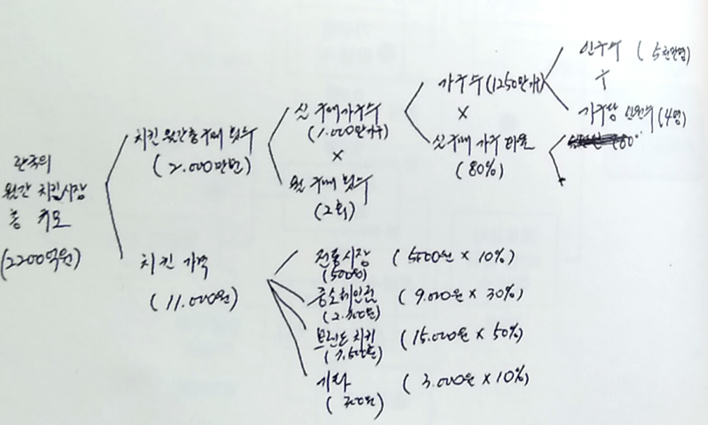 한국의
월간 치킨시장
총 규모
(2200억원)
치킨 월간 총 구매 횟수
(2.000만번)
치킨 가격
(11.000원)
실 구매가구수
(1.000만가구)
×
월 구매 횟수
(2회)
가구수 (1250만가구)
×
실구매 가구 비율
(80%)
인구수 (5천만명)
÷
가구당 인원수 (4명)
전통시장 (5000원 × 10%)
(500원)
중소체인점 (9.000원 × 30%)
브랜드 치킨 (15.000원 × 50%)
(7.500원)
기타 (3.000원 × 10%)
(300원)